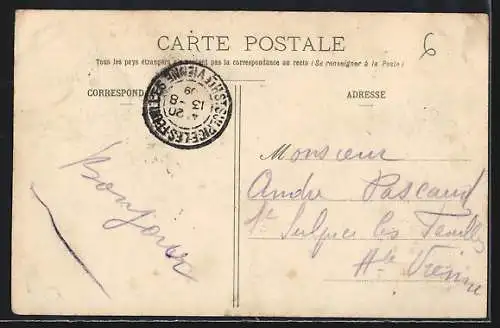 6
CARTE POSTALE
Tous les pays étrangers n'acceptent pas la correspondance au recto (Se renseigner à la Poste)
CORRESPONDANCE
ADRESSE
ST SULPICE-LES-FEUILLES
HTE VIENNE
4 20
13 -8
09
Bonjour
Monsieur
André Pascaud
St Sulpice les Feuilles
Hte Vienne